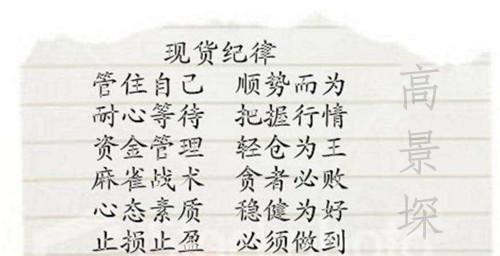 现货纪律
管住自己 顺势而为
耐心等待 把握行情
资金管理 轻仓为王
麻雀战术 贪者必败
心态素质 稳健为好
止损止盈 必须做到
高景琛